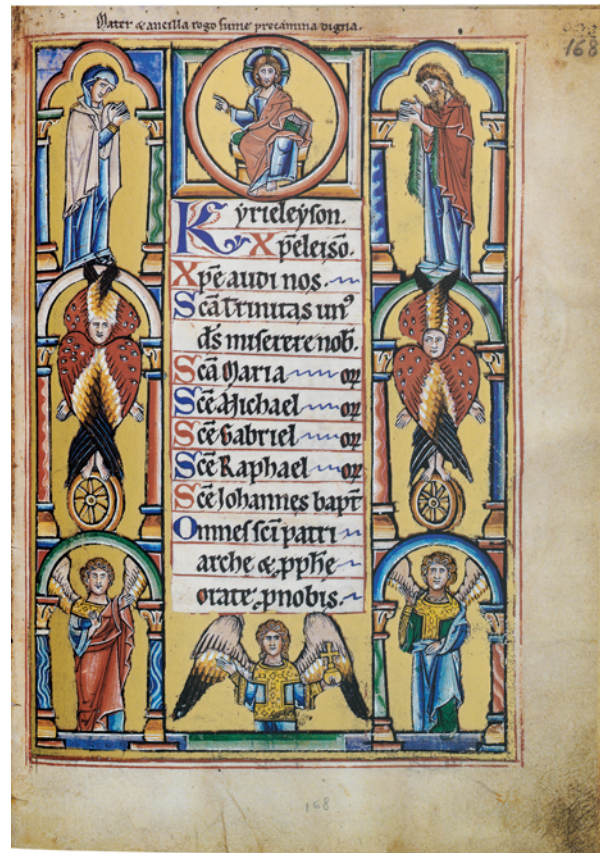 Mater & ancilla rogo sume precamina digna.
168
Kyrieleyson.
Xp̄eleisō.
Xp̄e audi nos.
Scā Trinitas un⁹
d̄s miserere nob̄.
Scā Maria or̄
Scē Michael or̄
Scē Gabriel or̄
Scē Raphael or̄
Scē Johannes bapt̄
Omnes sc̄i patri
arche & pp̄he
orate, p nobis.
168